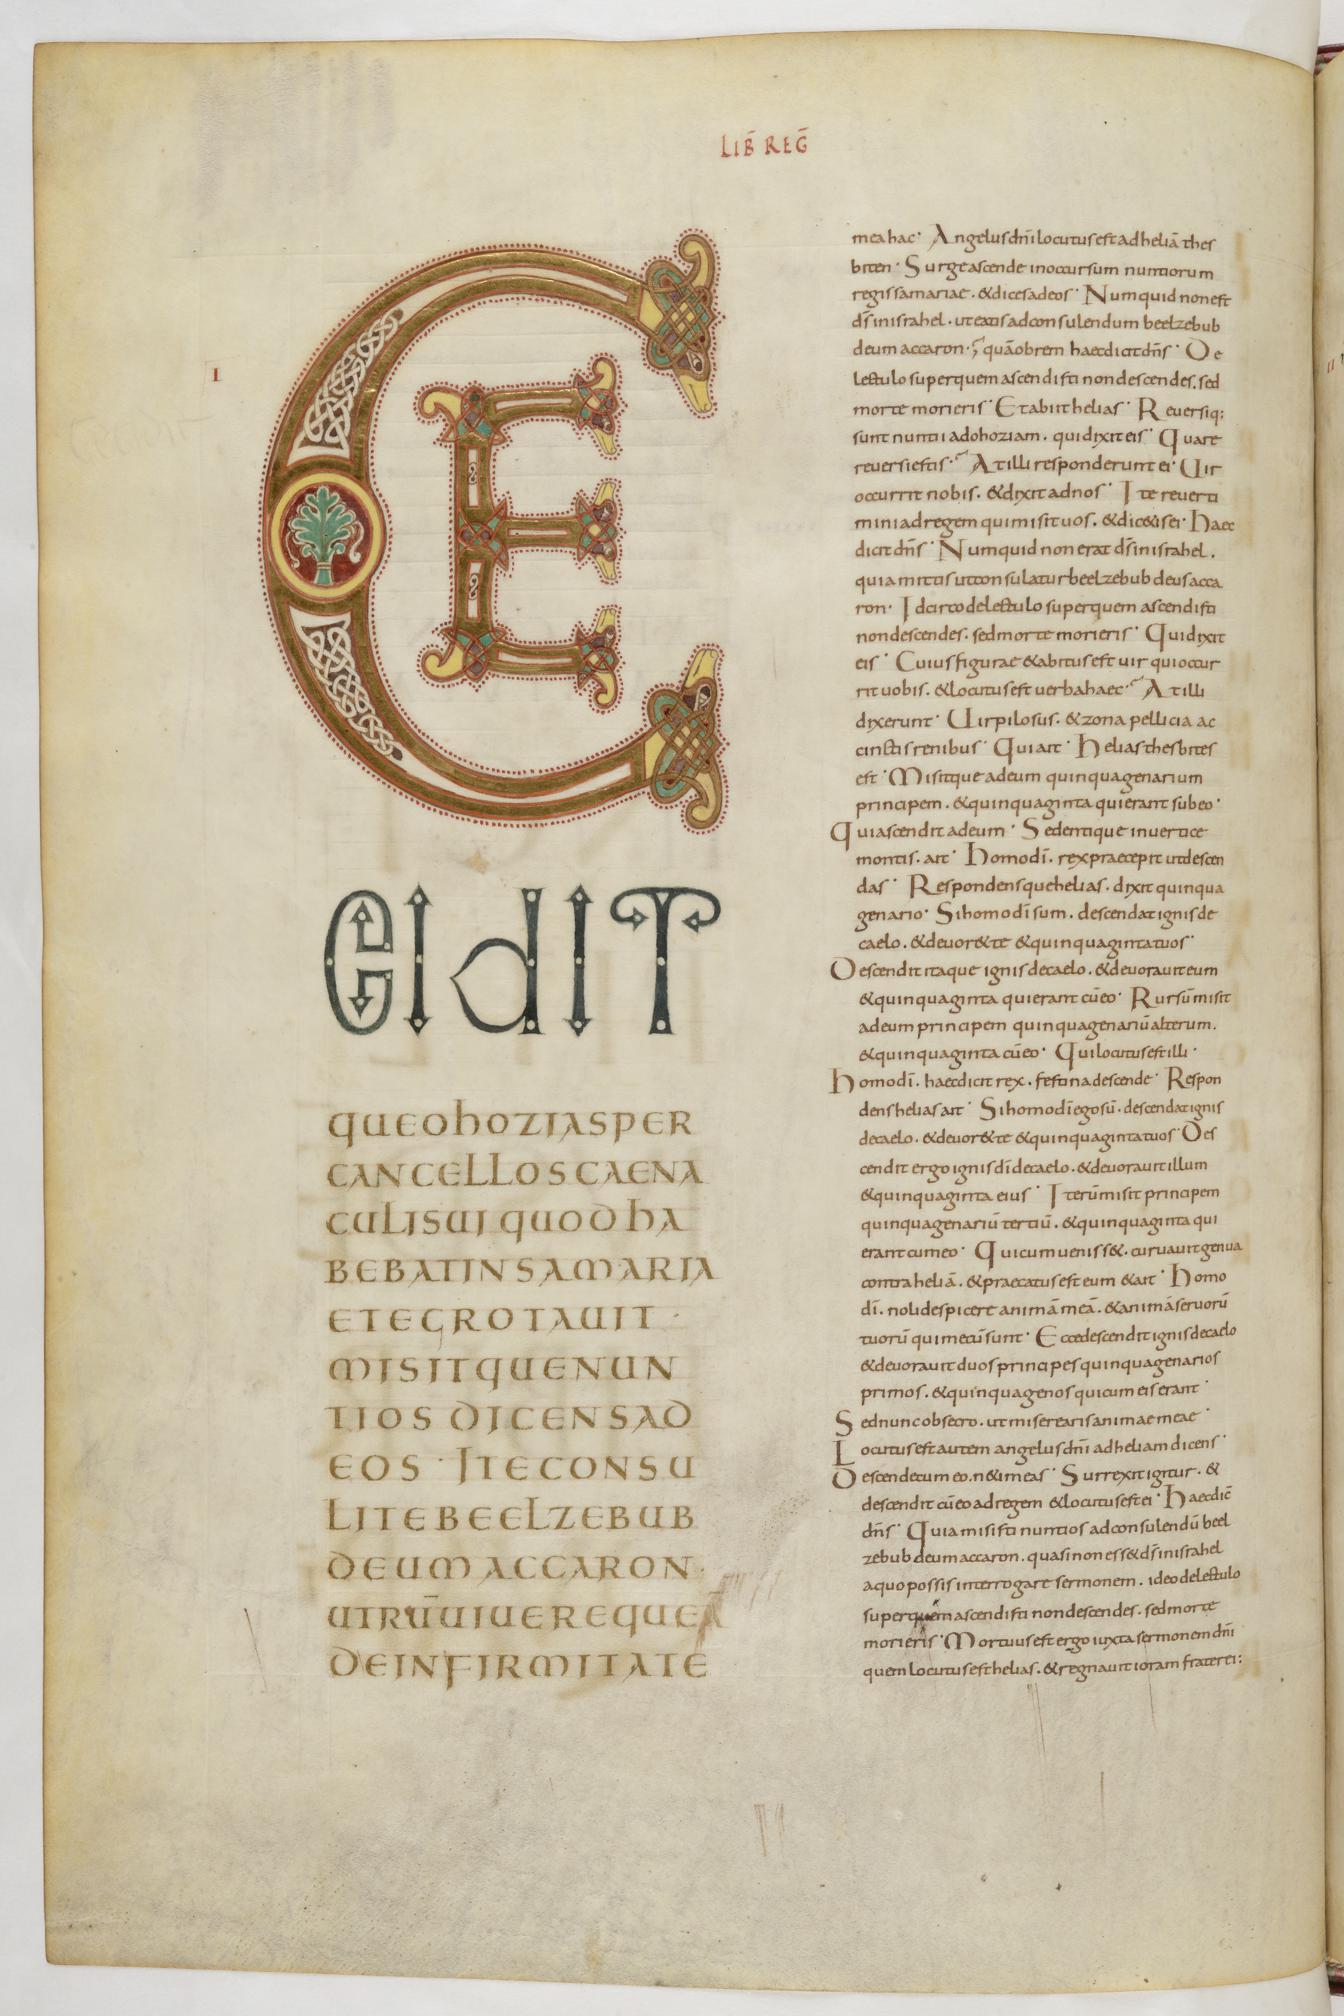 LIB̄ REḠ
I
CE
CIDIT
QUE OHOZIAS PER
CANCELLOS CAENA
CULI SUI QUOD HA
BEBAT IN SAMARIA
ET EGROTAUIT ·
MISITQUE NUN
TIOS DICENS AD
EOS · ITE CONSU
LITE BEELZEBUB
DEUM ACCARON ·
UTRŪ UIUERE QUEĀ
DE INFIRMITATE
mea hac· Angelus dn̄i locutus est ad heliā thes
biten· Surge ascende in occursum nuntiorum
regis samariae. & dices ad eos· Numquid non est
d̄s in israhel. ut eatis ad consulendum beelzebub
deum accaron·; quāobrem haec dicit dn̄s· De
lectulo super quem ascendisti non descendes. sed
morte morieris· Et abiit helias· Reversiq;
sunt nuntii ad ohoziam. qui dixit eis· Quare
reversi estis· At illi responderunt ei· Uir
occurrit nobis. & dixit ad nos· Ite reverti
mini ad regem qui misit uos. & dic&is ei· Haec
dicit dn̄s· Numquid non erat d̄s in israhel.
quia mittis ut consulatur beelzebub deus acca
ron· Idcirco de lectulo super quem ascendisti
non descendes. sed morte morieris· Qui dixit
eis· Cuius figurae & abitus est uir qui occur
rit uobis. & locutus est uerba haec· At illi
dixerunt· Uir pilosus. & zona pellicia ac
cinctis renibus· Qui ait· Helias thesbites
est· Misitque ad eum quinquagenarium
principem. & quinquaginta qui erant sub eo·
Qui ascendit ad eum· Sedentique in uertice
montis. ait· Homo dī. rex praecepit ut descen
das· Respondensque helias. dixit quinqua
genario· Si homo dī sum. descendat ignis de
caelo. & deuor& te & quinquaginta tuos·
Descendit itaque ignis de caelo. & deuorauit eum
& quinquaginta qui erant cū eo· Rursū misit
ad eum principem quinquagenariū alterum.
& quinquaginta cū eo· Qui locutus est illi·
Homo dī. haec dicit rex. festina descende· Respon
dens helias ait· Si homo dī ego sū. descendat ignis
de caelo. & deuor& te & quinquaginta tuos· Des
cendit ergo ignis dī de caelo. & deuorauit illum
& quinquaginta eius· Iterū misit principem
quinquagenariū tertiū. & quinquaginta qui
erant cum eo· Qui cumueniss&. curuauit genua
contra heliā. & praecatus est eum & ait· Homo
dī. noli despicere animā meā. & animā seruorū
tuorū qui mecū sunt· Ecce descendit ignis de caelo
& deuorauit duos principes quinquagenarios
primos. & quinquagenos qui cum eis erant·
Sed nunc obsecro. ut miserearis animae meae·
Locutus est autem angelus dn̄i ad heliam dicens·
Descende cum eo. ne timeas· Surrexit igitur. &
descendit cū eo ad regem & locutus est ei· Haec dic̄
dn̄s· Quia misisti nuntios ad consulendū beel
zebub deum accaron. quasi non ess& d̄s in israhel
a quo possis interrogare sermonem. ideo de lectulo
super quem ascendisti non descendes. sed morte
morieris· Mortuus est ergo iuxta sermonem dn̄i
quem locutus est helias. & regnauit ioram frater ei: